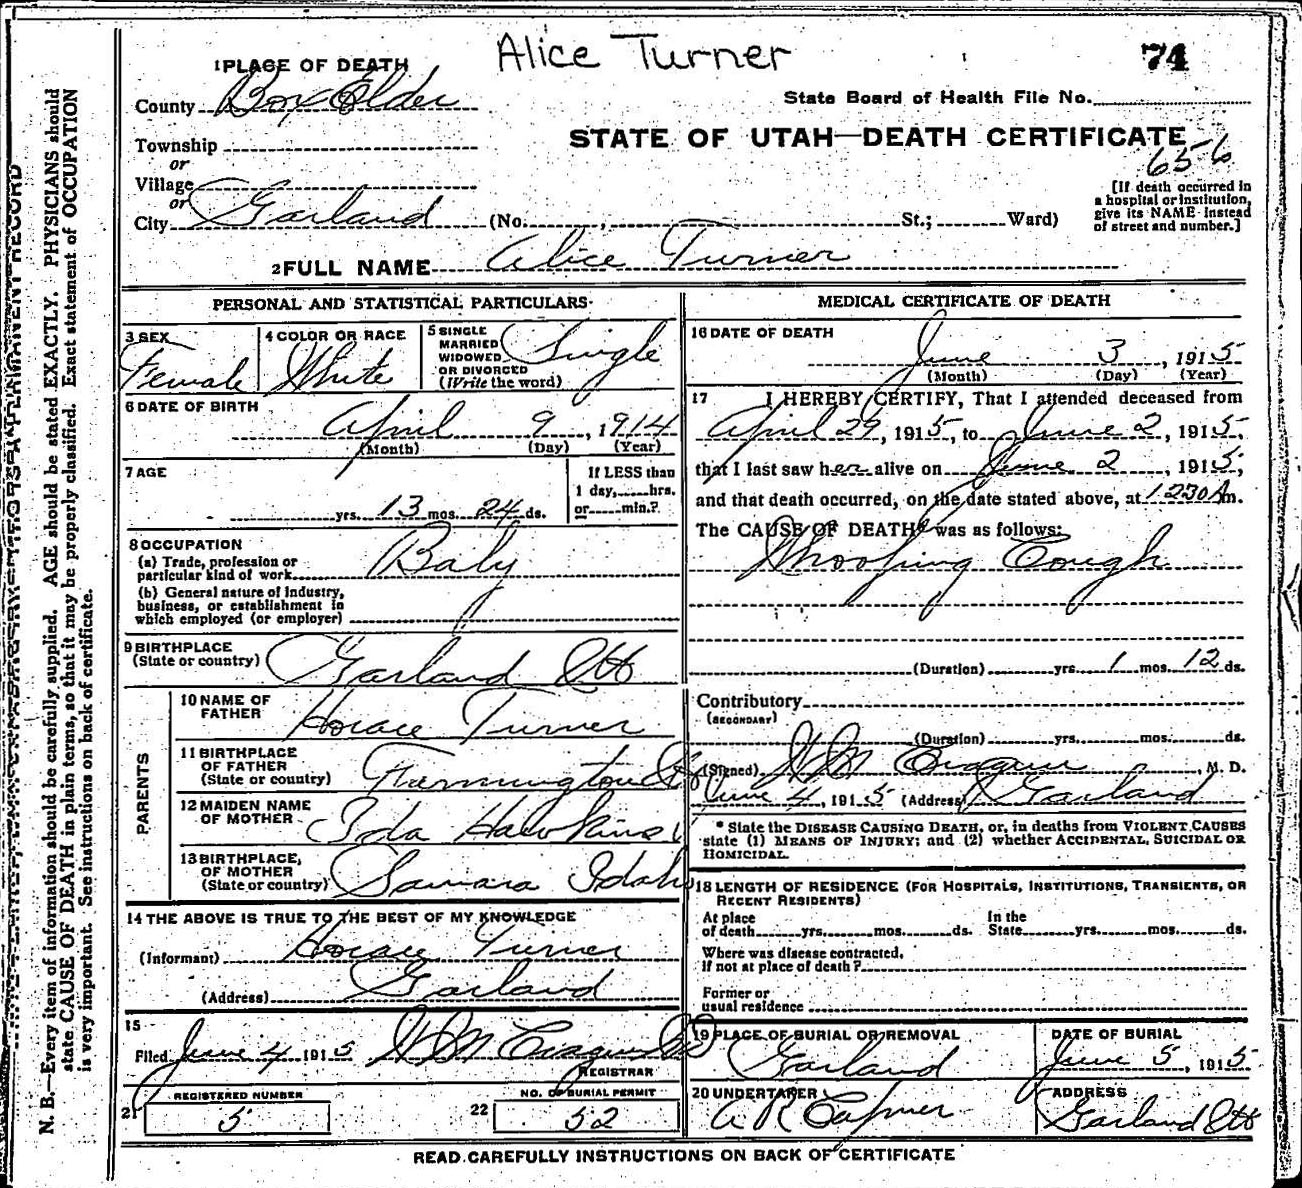 Alice Turner
74
1 PLACE OF DEATH
County Box Elder
State Board of Health File No.
STATE OF UTAH—DEATH CERTIFICATE
656
Township
or
Village
or
City Garland (No. , St.; Ward)
[If death occurred in
a hospital or institution,
give its NAME instead
of street and number.]
2 FULL NAME Alice Turner
PERSONAL AND STATISTICAL PARTICULARS
3 SEX
Female
4 COLOR OR RACE
White
5 SINGLE
MARRIED
WIDOWED
OR DIVORCED
(Write the word)
Single
6 DATE OF BIRTH
April 9, 1914
(Month) (Day) (Year)
7 AGE
yrs. 13 mos. 24 ds.
If LESS than
1 day, hrs.
or min.?
8 OCCUPATION
(a) Trade, profession or
particular kind of work Baby
(b) General nature of Industry,
business, or establishment in
which employed (or employer)
9 BIRTHPLACE
(State or country) Garland Utt
PARENTS
10 NAME OF
FATHER Horace Turner
11 BIRTHPLACE
OF FATHER
(State or country) Farmington
12 MAIDEN NAME
OF MOTHER Ida Hawkins
13 BIRTHPLACE,
OF MOTHER
(State or country) Samara Idaho
14 THE ABOVE IS TRUE TO THE BEST OF MY KNOWLEDGE
(Informant) Horace Turner
(Address) Garland
15
Filed June 4 1915 Wm
REGISTRAR
REGISTERED NUMBER
21 5
NO. OF BURIAL PERMIT
22 52
MEDICAL CERTIFICATE OF DEATH
16 DATE OF DEATH
June 3, 1915
(Month) (Day) (Year)
17 I HEREBY CERTIFY, That I attended deceased from
April 29, 1915, to June 2, 1915,
that I last saw her alive on June 2, 1915,
and that death occurred, on the date stated above, at 1230 Am.
The CAUSE OF DEATH* was as follows:
Whooping Cough
(Duration) yrs. 1 mos. 12 ds.
Contributory
(SECONDARY)
(Duration) yrs. mos. ds.
(Signed) Wm , M. D.
June 4, 1915 (Address) Garland
* State the DISEASE CAUSING DEATH, or, in deaths from VIOLENT CAUSES
state (1) MEANS OF INJURY; and (2) whether ACCIDENTAL, SUICIDAL OR
HOMICIDAL.
18 LENGTH OF RESIDENCE (FOR HOSPITALS, INSTITUTIONS, TRANSIENTS, OR
RECENT RESIDENTS)
At place
of death yrs. mos. ds.
In the
State yrs. mos. ds.
Where was disease contracted,
if not at place of death?
Former or
usual residence
19 PLACE OF BURIAL OR REMOVAL
Garland
DATE OF BURIAL
June 5, 1915
20 UNDERTAKER
A R Capner
ADDRESS
Garland Utt
READ CAREFULLY INSTRUCTIONS ON BACK OF CERTIFICATE
N. B.—Every item of information should be carefully supplied. AGE should be stated EXACTLY. PHYSICIANS should
state CAUSE OF DEATH in plain terms, so that it may be properly classified. Exact statement of OCCUPATION
is very important. See instructions on back of certificate.